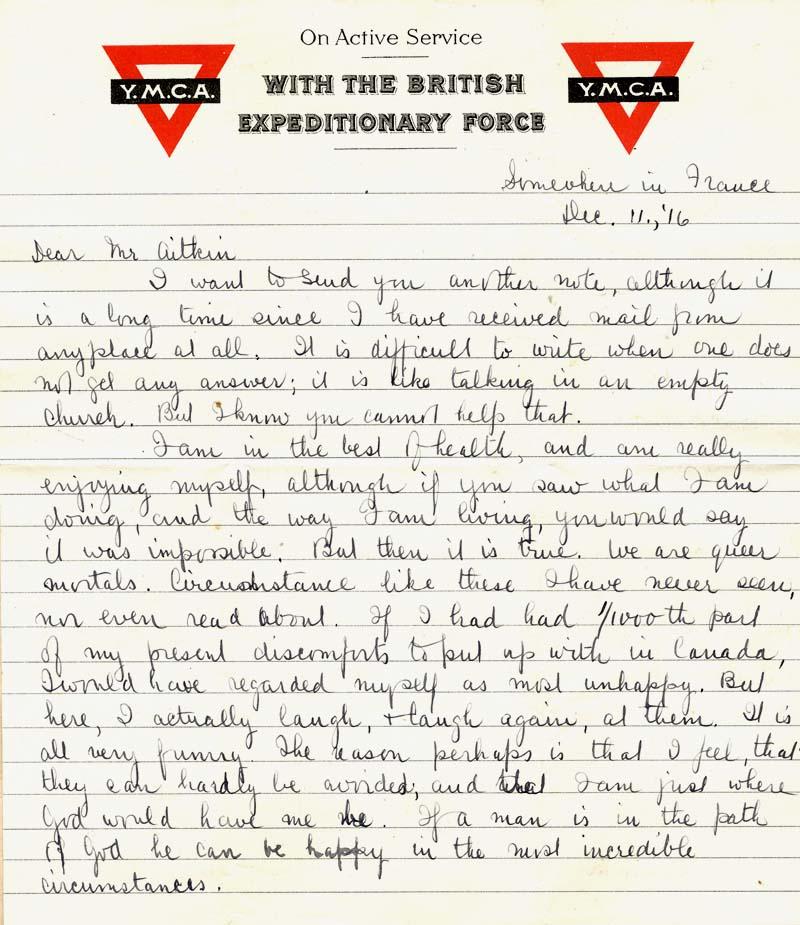 On Active Service
Y.M.C.A. WITH THE BRITISH Y.M.C.A.
EXPEDITIONARY FORCE
Somewhere in France
Dec. 11.,'16
Dear Mr Aitkin
I want to send you another note, although it
is a long time since I have received mail from
anyplace at all. It is difficult to write when one does
not get any answer; it is like talking in an empty
church. But I know you cannot help that.
I am in the best of health, and am really
enjoying myself, although if you saw what I am
doing, and the way I am living, you would say
it was impossible. But then it is true. We are queer
mortals. Circumstance like these I have never seen,
nor even read about. If I had had 1/1000th part
of my present discomforts to put up with in Canada,
I would have regarded myself as most unhappy. But
here, I actually laugh, + laugh again, at them. It is
all very funny. The reason perhaps is that I feel, that
they can hardly be avoided; and that I am just where
God would have me be. If a man is in the path
of God he can be happy in the most incredible
circumstances.